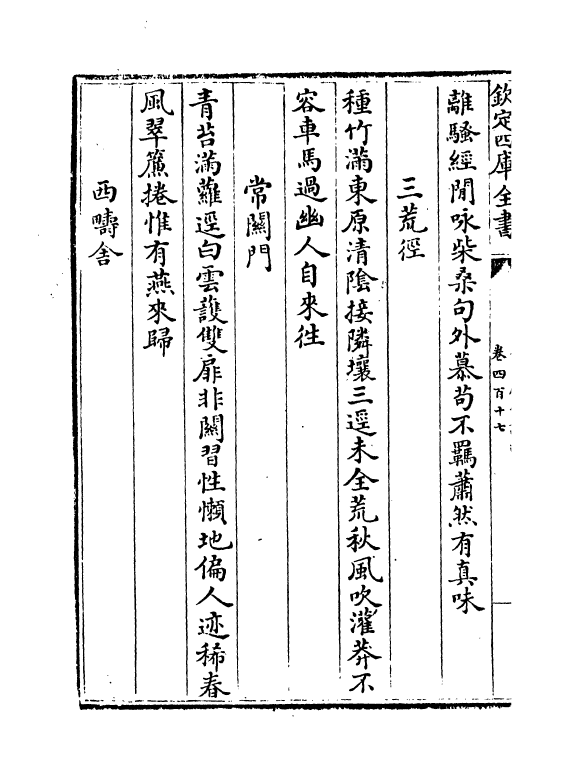 欽定四庫全書
卷四百十七
離騷經閒咏柴桑句外慕茍不羈蕭然有真味
三荒徑
種竹滿東原清陰接隣壤三逕未全荒秋風吹灌莽不
容車馬過幽人自來往
常關門
青苔滿蘿逕白雲護雙扉非關習性懶地偏人迹稀春
風翠簾捲惟有燕來歸
西疇舍